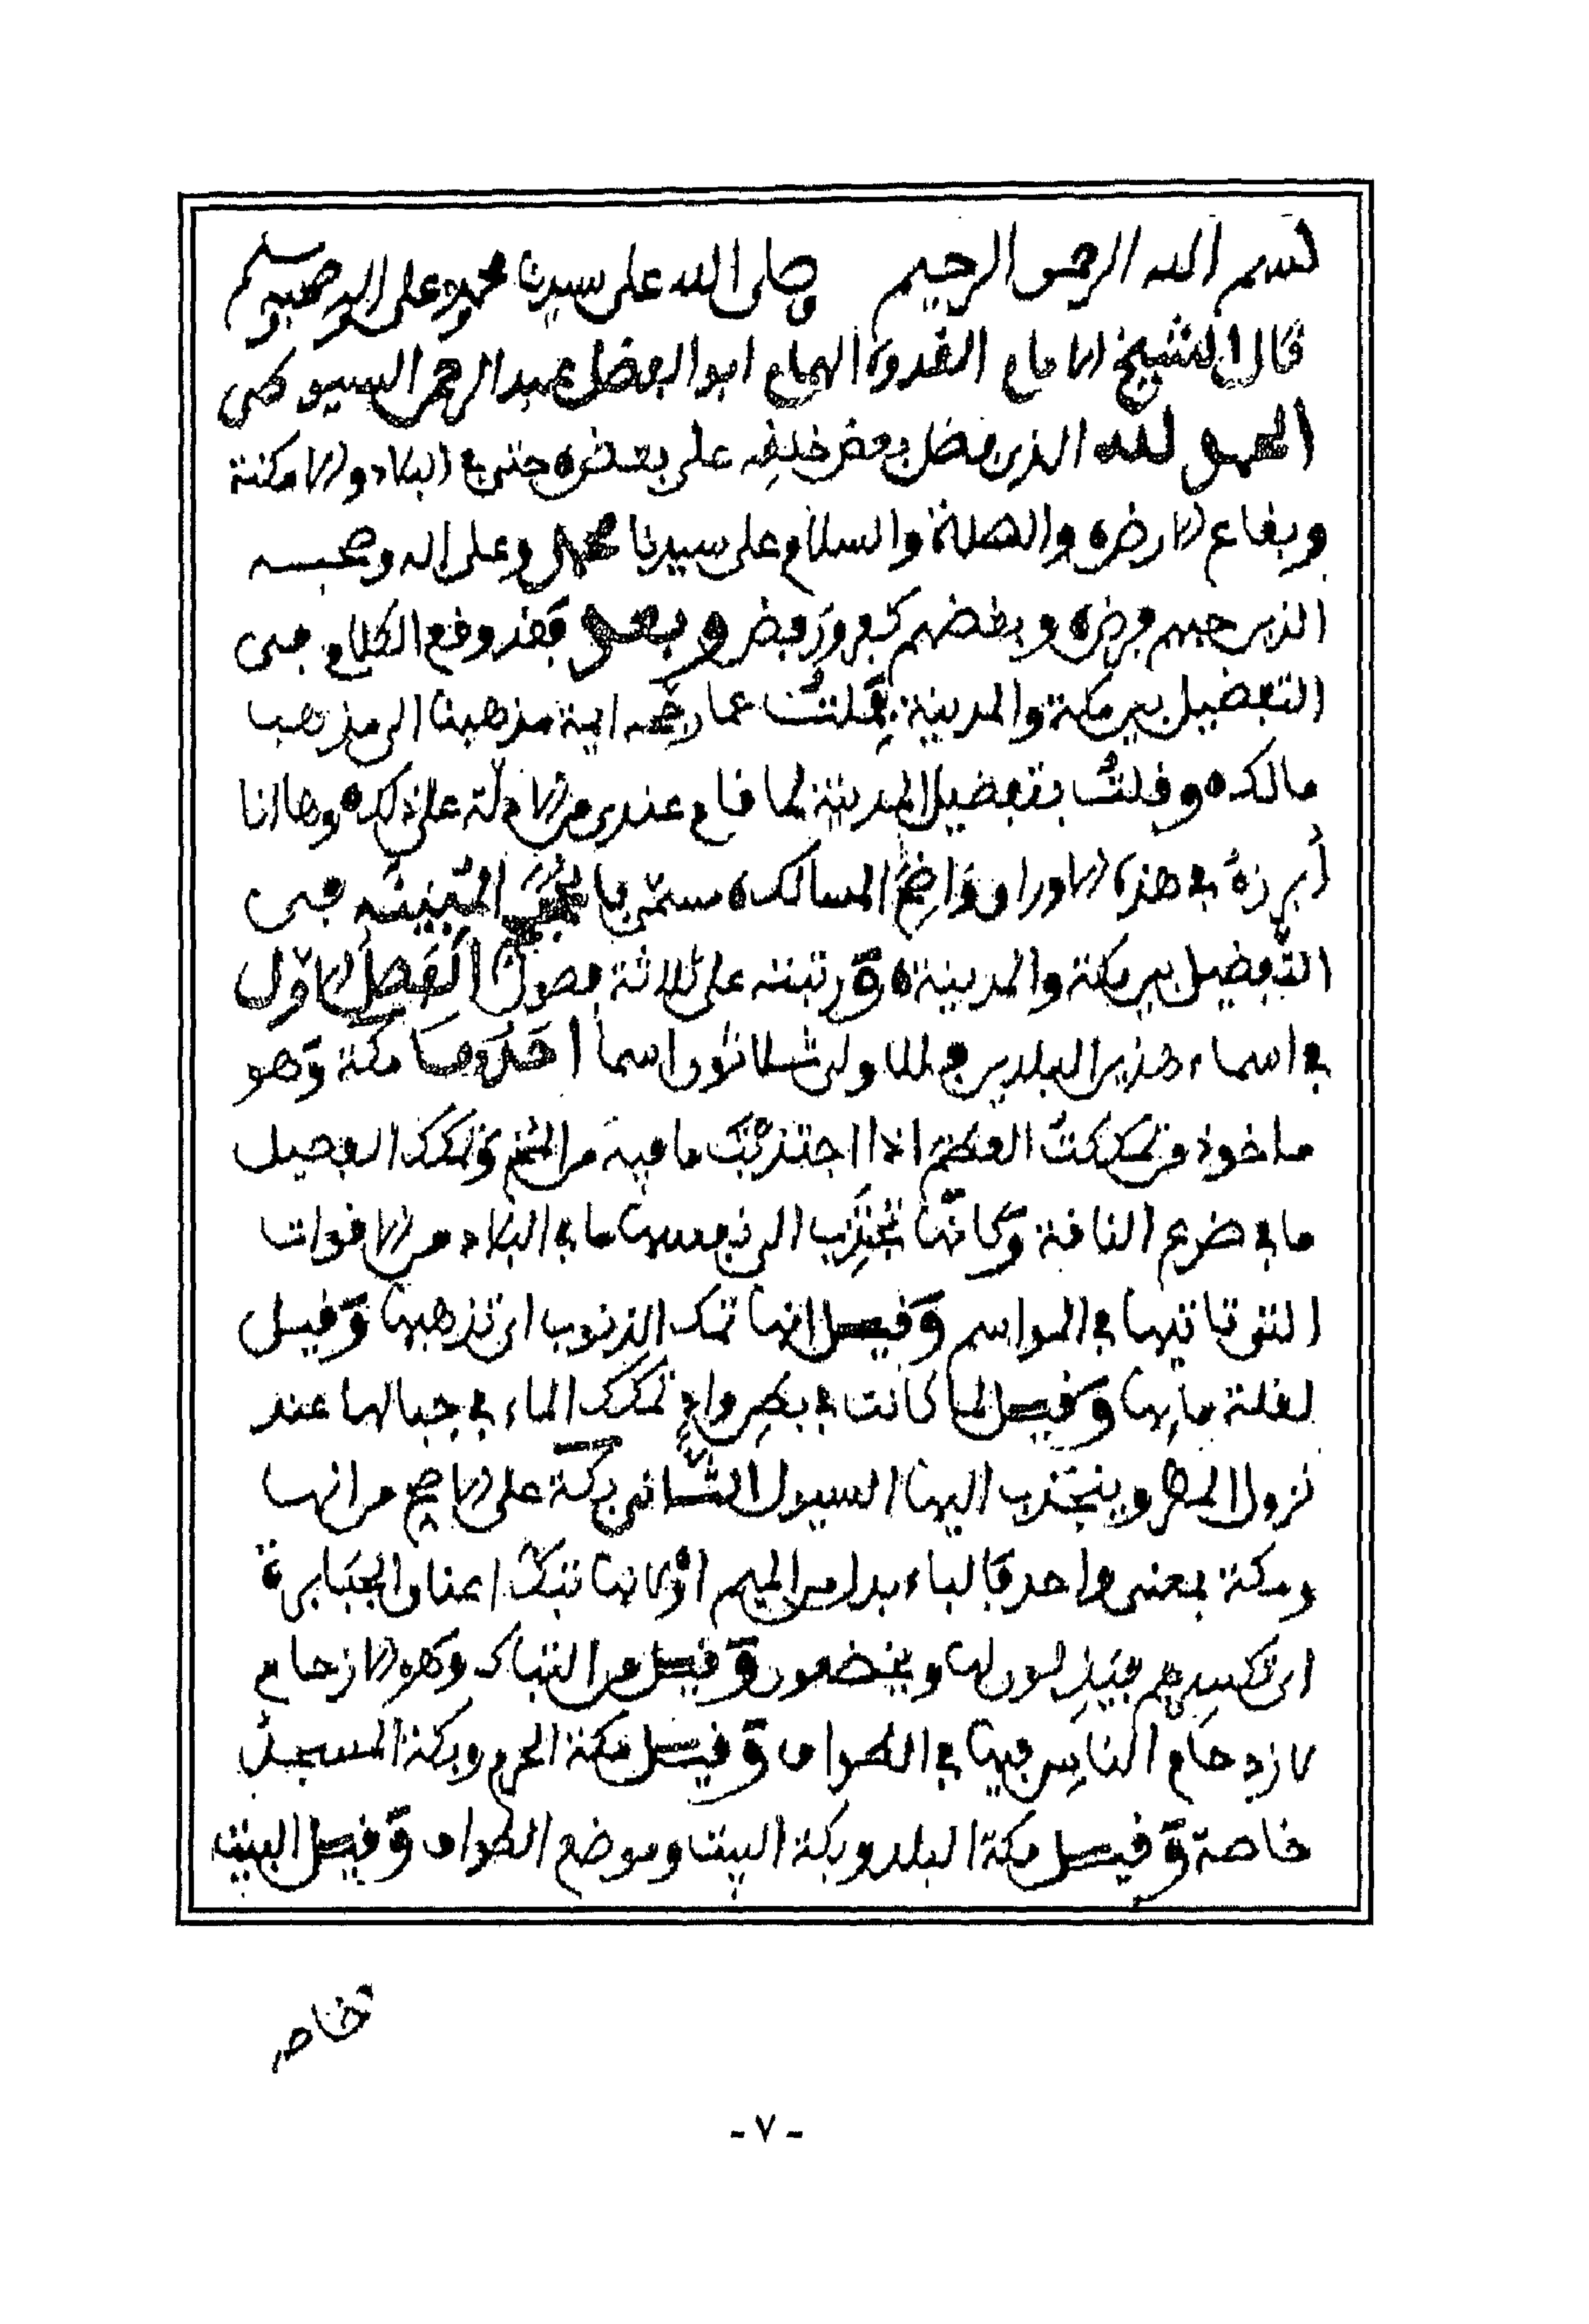 بسم الله الرحمن الرحيم وصلى الله على سيدنا محمد وعلى اله وصحبه وسلم
قال الشيخ الامام القدوة الهمام ابو الفضل عبد الرحمن السيوطي
الحمد لله الذي فضل بعض خلقه على بعض حتى في البلاد والامكنة
وبقاع الارض والصلاة والسلام على سيدنا محمد وعلى اله وصحبه
الذين حبهم فرض وبغضهم كفر ورفض وبعد فقد وقع الكلام في
التفضيل بين مكة والمدينة فملت عما رجحه ايمة مذهبنا الى مذهب
مالك وقلت بتفضيل المدينة لما قام عندي من الادلة على ذلك وها انا
أبرزهُ في هذه الاوراق واضح المسالك سمّى بالحجج المُبينه في
التفضيل بين مكة والمدينة ورتبته على ثلاثة فصول الفصل الاوّل
في اسماء هذين البلدين فللاولى ثلاثون اسما احدها مكة وهو
ماخوذ من تمككت العظم اذا اجتذبت ما فيه من المخ وتمكك الفصيل
ما في ضرع الناقة وكانها تجتذب الى نفسها ما في البلاد من الاقوات
التي تاتيها في المواسم وقيل انها تمك الذنوب اي تذهبها وقيل
لقلة مايها وقيل لما كانت في بطن وادٍ تمكك الماء في جبالها عند
نزول المطر وينجذب اليها السيول الثاني بكة على الاصح من انها
ومكة بمعنى واحد فالباء بدل من الميم او لانها تبكّ اعناق الجبابرة
اي تكسرهم فيذلون لها ويخضعون وقيل من التباك وهو الازحام
لازدحام الناس فيها في الطواف وقيل مكة الحرم وبكة المسجد
خاصة وقيل مكة البلد وبكة البيت وموضع الطواف وقيل البيت
خاصة
- ٧ -